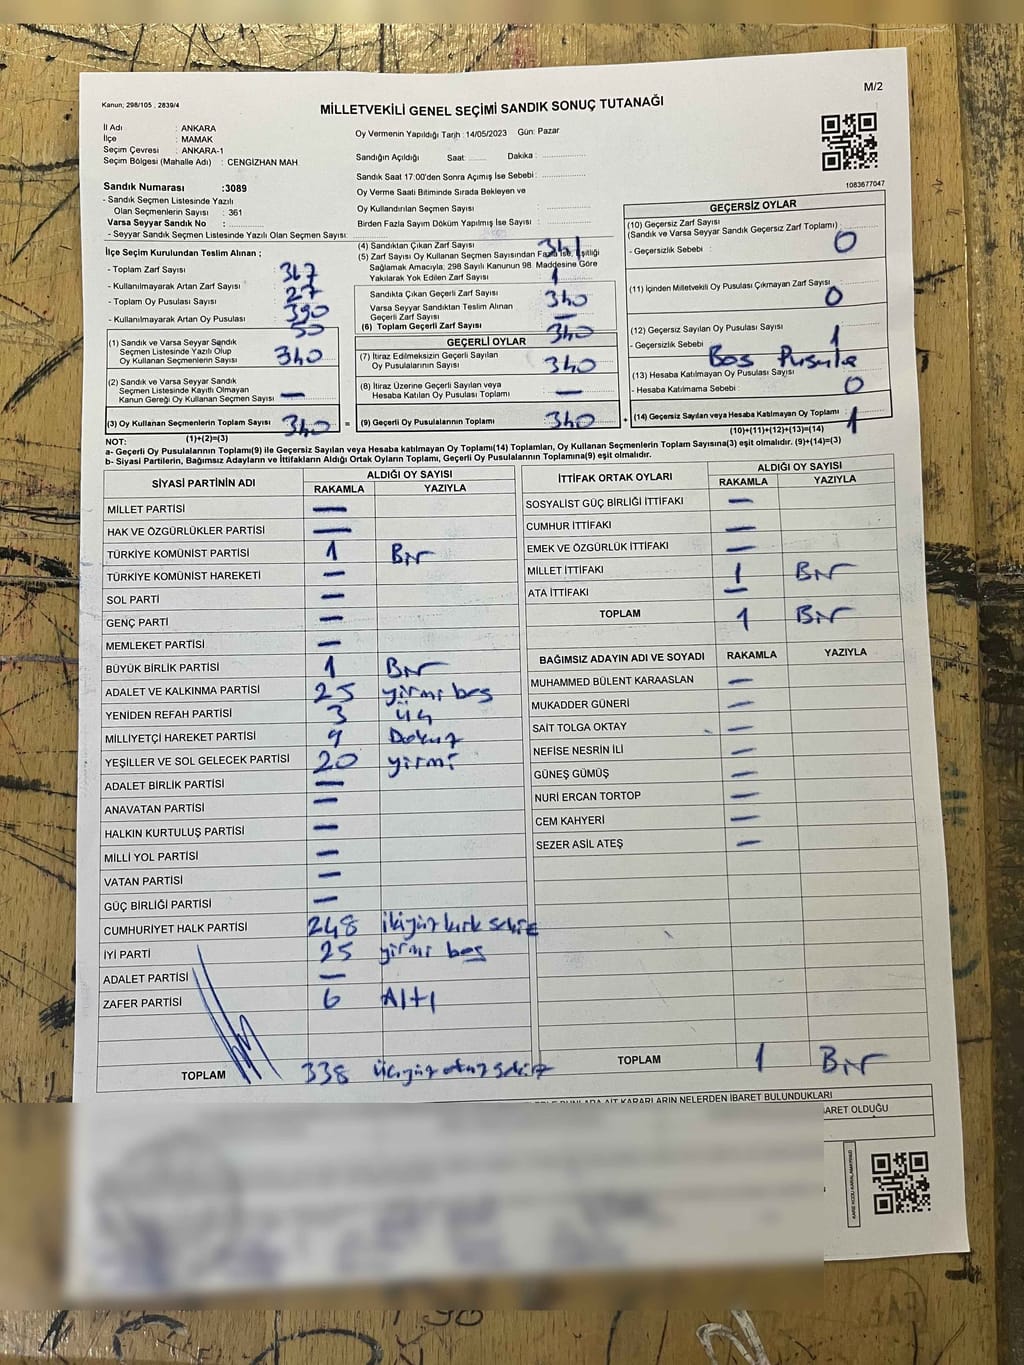 M/2
Kanun; 298/105 , 2839/4
MİLLETVEKİLİ GENEL SEÇİMİ SANDIK SONUÇ TUTANAĞI
İl Adı : ANKARA
İlçe : MAMAK
Seçim Çevresi : ANKARA-1
Seçim Bölgesi (Mahalle Adı) : CENGİZHAN MAH
Sandık Numarası :3089
- Sandık Seçmen Listesinde Yazılı
Olan Seçmenlerin Sayısı : 361
Varsa Seyyar Sandık No :
- Seyyar Sandık Seçmen Listesinde Yazılı Olan Seçmen Sayısı:
Oy Vermenin Yapıldığı Tarih :14/05/2023 Gün: Pazar
Sandığın Açıldığı Saat: ........ Dakika: ..................
Sandık Saat 17:00'den Sonra Açımış İse Sebebi:
Oy Verme Saati Bitiminde Sırada Bekleyen ve
Oy Kullandırılan Seçmen Sayısı :
Birden Fazla Sayım Döküm Yapılmış İse Sayısı :
1083677047
İlçe Seçim Kurulundan Teslim Alınan ;
- Toplam Zarf Sayısı 367
- Kullanılmayarak Artan Zarf Sayısı : 27
- Toplam Oy Pusulası Sayısı : 390
- Kullanılmayarak Artan Oy Pusulası : 50
(1) Sandık ve Varsa Seyyar Sandık
Seçmen Listesinde Yazılı Olup
Oy Kullanan Seçmenlerin Sayısı : 340
(2) Sandık ve Varsa Seyyar Sandık
Seçmen Listesinde Kayıtlı Olmayan
Kanun Gereği Oy Kullanan Seçmen Sayısı : —
(3) Oy Kullanan Seçmenlerin Toplam Sayısı : 340
(1)+(2)=(3)
(4) Sandıktan Çıkan Zarf Sayısı : 341
(5) Zarf Sayısı Oy Kullanan Seçmen Sayısından Fazla İse, Eşitliği
Sağlamak Amacıyla; 298 Sayılı Kanunun 98. Maddesine Göre
Yakılarak Yok Edilen Zarf Sayısı : 1
Sandıkta Çıkan Geçerli Zarf Sayısı : 340
Varsa Seyyar Sandıktan Teslim Alınan
Geçerli Zarf Sayısı : —
(6) Toplam Geçerli Zarf Sayısı : 340
GEÇERLİ OYLAR
(7) İtiraz Edilmeksizin Geçerli Sayılan
Oy Pusulalarının Sayısı : 340
(8) İtiraz Üzerine Geçerli Sayılan veya
Hesaba Katılan Oy Pusulası Toplamı : —
= (9) Geçerli Oy Pusulalarının Toplamı : 340 +
GEÇERSİZ OYLAR
(10) Geçersiz Zarf Sayısı
(Sandık ve Varsa Seyyar Sandık Geçersiz Zarf Toplamı)
- Geçersizlik Sebebi : 0
(11) İçinden Milletvekili Oy Pusulası Çıkmayan Zarf Sayısı : 0
(12) Geçersiz Sayılan Oy Pusulası Sayısı : 1
- Geçersizlik Sebebi : Boş Pusula
(13) Hesaba Katılmayan Oy Pusulası Sayısı
- Hesaba Katılmama Sebebi : 0
(14) Geçersiz Sayılan veya Hesaba Katılmayan Oy Toplamı : 1
(10)+(11)+(12)+(13)=(14)
NOT:
a- Geçerli Oy Pusulalarının Toplamı(9) ile Geçersiz Sayılan veya Hesaba katılmayan Oy Toplamı(14) Toplamları, Oy Kullanan Seçmenlerin Toplam Sayısına(3) eşit olmalıdır. (9)+(14)=(3)
b- Siyasi Partilerin, Bağımsız Adayların ve İttifakların Aldığı Ortak Oyların Toplamı, Geçerli Oy Pusulalarının Toplamına(9) eşit olmalıdır.
SİYASİ PARTİNİN ADI ALDIĞI OY SAYISI
RAKAMLA YAZIYLA
MİLLET PARTİSİ —
HAK VE ÖZGÜRLÜKLER PARTİSİ —
TÜRKİYE KOMÜNİST PARTİSİ 1 Bir
TÜRKİYE KOMÜNİST HAREKETİ —
SOL PARTİ —
GENÇ PARTİ —
MEMLEKET PARTİSİ —
BÜYÜK BİRLİK PARTİSİ 1 Bir
ADALET VE KALKINMA PARTİSİ 25 yirmi beş
YENİDEN REFAH PARTİSİ 3 üç
MİLLİYETÇİ HAREKET PARTİSİ 9 Dokuz
YEŞİLLER VE SOL GELECEK PARTİSİ 20 yirmi
ADALET BİRLİK PARTİSİ —
ANAVATAN PARTİSİ —
HALKIN KURTULUŞ PARTİSİ —
MİLLİ YOL PARTİSİ —
VATAN PARTİSİ —
GÜÇ BİRLİĞİ PARTİSİ —
CUMHURİYET HALK PARTİSİ 248 ikiyüz kırk sekiz
İYİ PARTİ 25 yirmi beş
ADALET PARTİSİ —
ZAFER PARTİSİ 6 Altı
TOPLAM 338 üçyüz otuz sekiz
İTTİFAK ORTAK OYLARI ALDIĞI OY SAYISI
RAKAMLA YAZIYLA
SOSYALİST GÜÇ BİRLİĞİ İTTİFAKI —
CUMHUR İTTİFAKI —
EMEK VE ÖZGÜRLÜK İTTİFAKI —
MİLLET İTTİFAKI 1 Bir
ATA İTTİFAKI —
TOPLAM 1 Bir
BAĞIMSIZ ADAYIN ADI VE SOYADI RAKAMLA YAZIYLA
MUHAMMED BÜLENT KARAASLAN —
MUKADDER GÜNERİ —
SAİT TOLGA OKTAY —
NEFİSE NESRİN İLİ —
GÜNEŞ GÜMÜŞ —
NURİ ERCAN TORTOP —
CEM KAHYERİ —
SEZER ASİL ATEŞ —
TOPLAM 1 Bir
KARARLARIN NELERDEN İBARET BULUNDUKLARI
ARET OLDUĞU